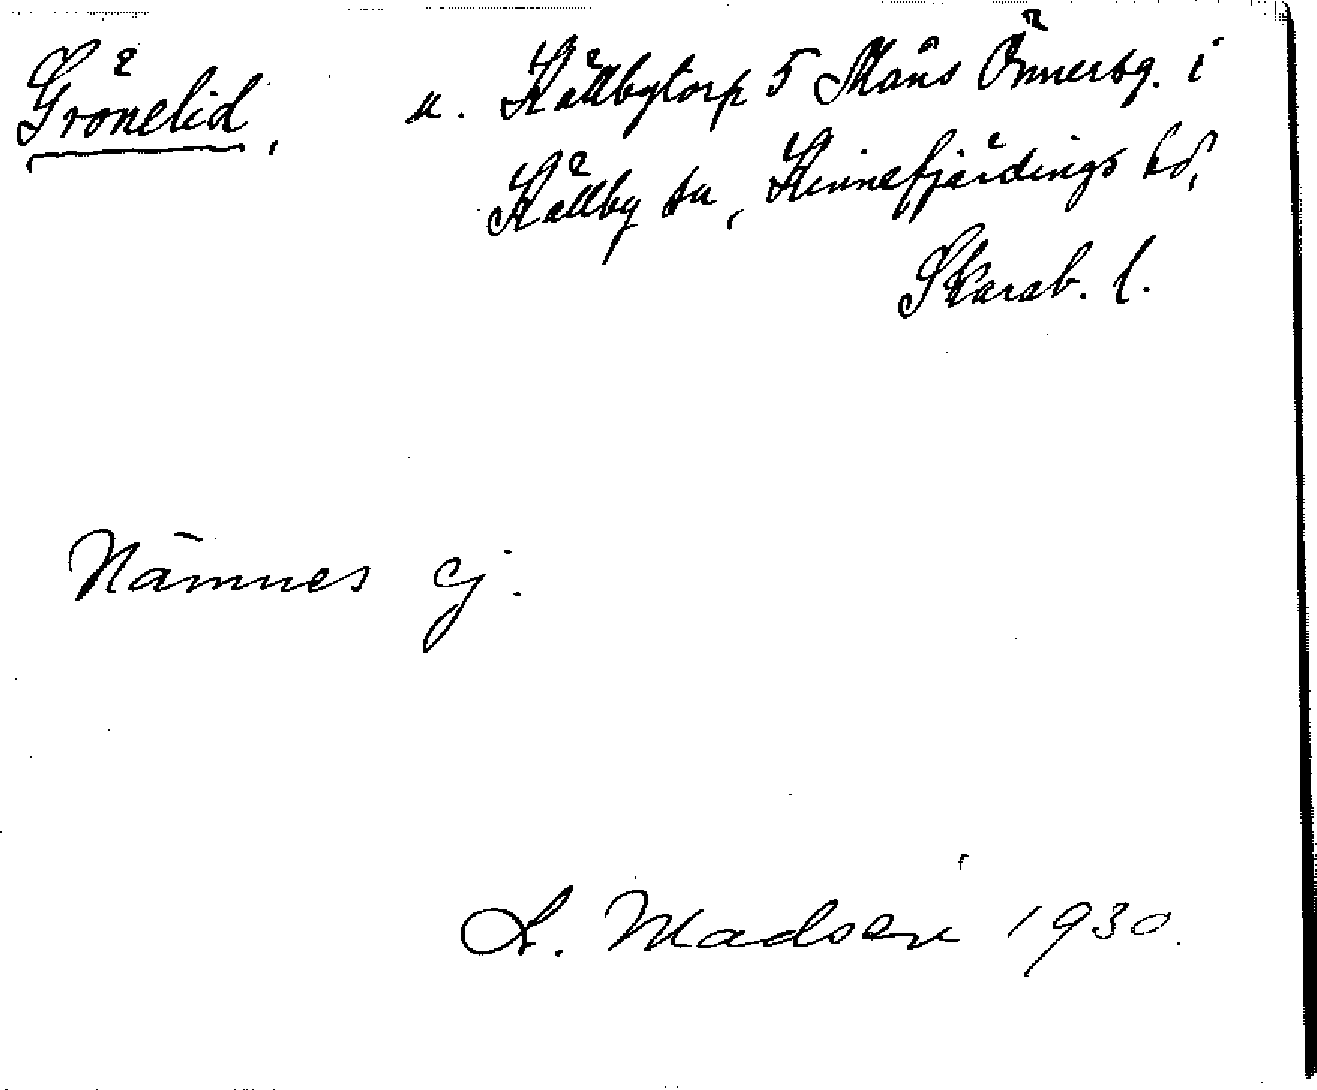 Grönelid, u. Källbytorp 5 Måns Önnersg. i
Källby sn, Kinnefjärdings hd,
Skarab. l.
Nämnes ej.
A. Madsen 1930.